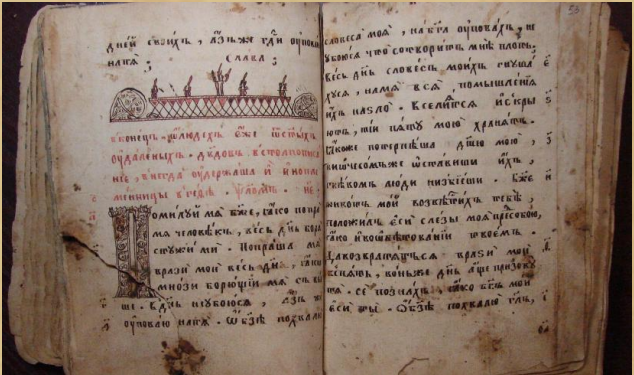 дней своихъ, азъ же гди уповаю
на тя ; слава ;
в конецъ ѿ людехъ еже ѿ стыхъ
удаленыхъ. дв҃дов в столпописа
ние, внегда удержаша и инопле
менницы в гефе. ѱалом. не.
Помилуй мя бж҃е, ꙗко попра
мя человѣкъ, весь днь боря
стужи ми. Попраша мя
врази мои весь днь, ꙗко
мнози борющии мя съ вы
ше. в днь не убоюся, азъ же
уповаю на тя. Ѡ бз҃ѣ похвалю
53
словеса моя, на бг҃а уповахъ, не
убоюся что сотворитъ мнѣ плоть.
весь днь словесъ моихъ гнуша
хуся, на мя вся, помышления
ихъ на зло. Вселятся и скры
ютъ, тии пяту мою хранятъ.
ꙗкоже потерпѣша дш҃ю мою,
ни о чесомъже ѿ
гнѣвом люди низъведеши. Бж҃е
животъ мой возвѣстихъ тебѣ,
положилъ еси слезы моя пред собою,
ꙗко и во обѣтовании твоемъ.
Да возвратятъся врази мои
вспять, во ньже днь аще призову
тя. се познахъ ꙗко бг҃ъ мой
еси ты. Ѡ бз҃ѣ похвалю гл҃ъ,